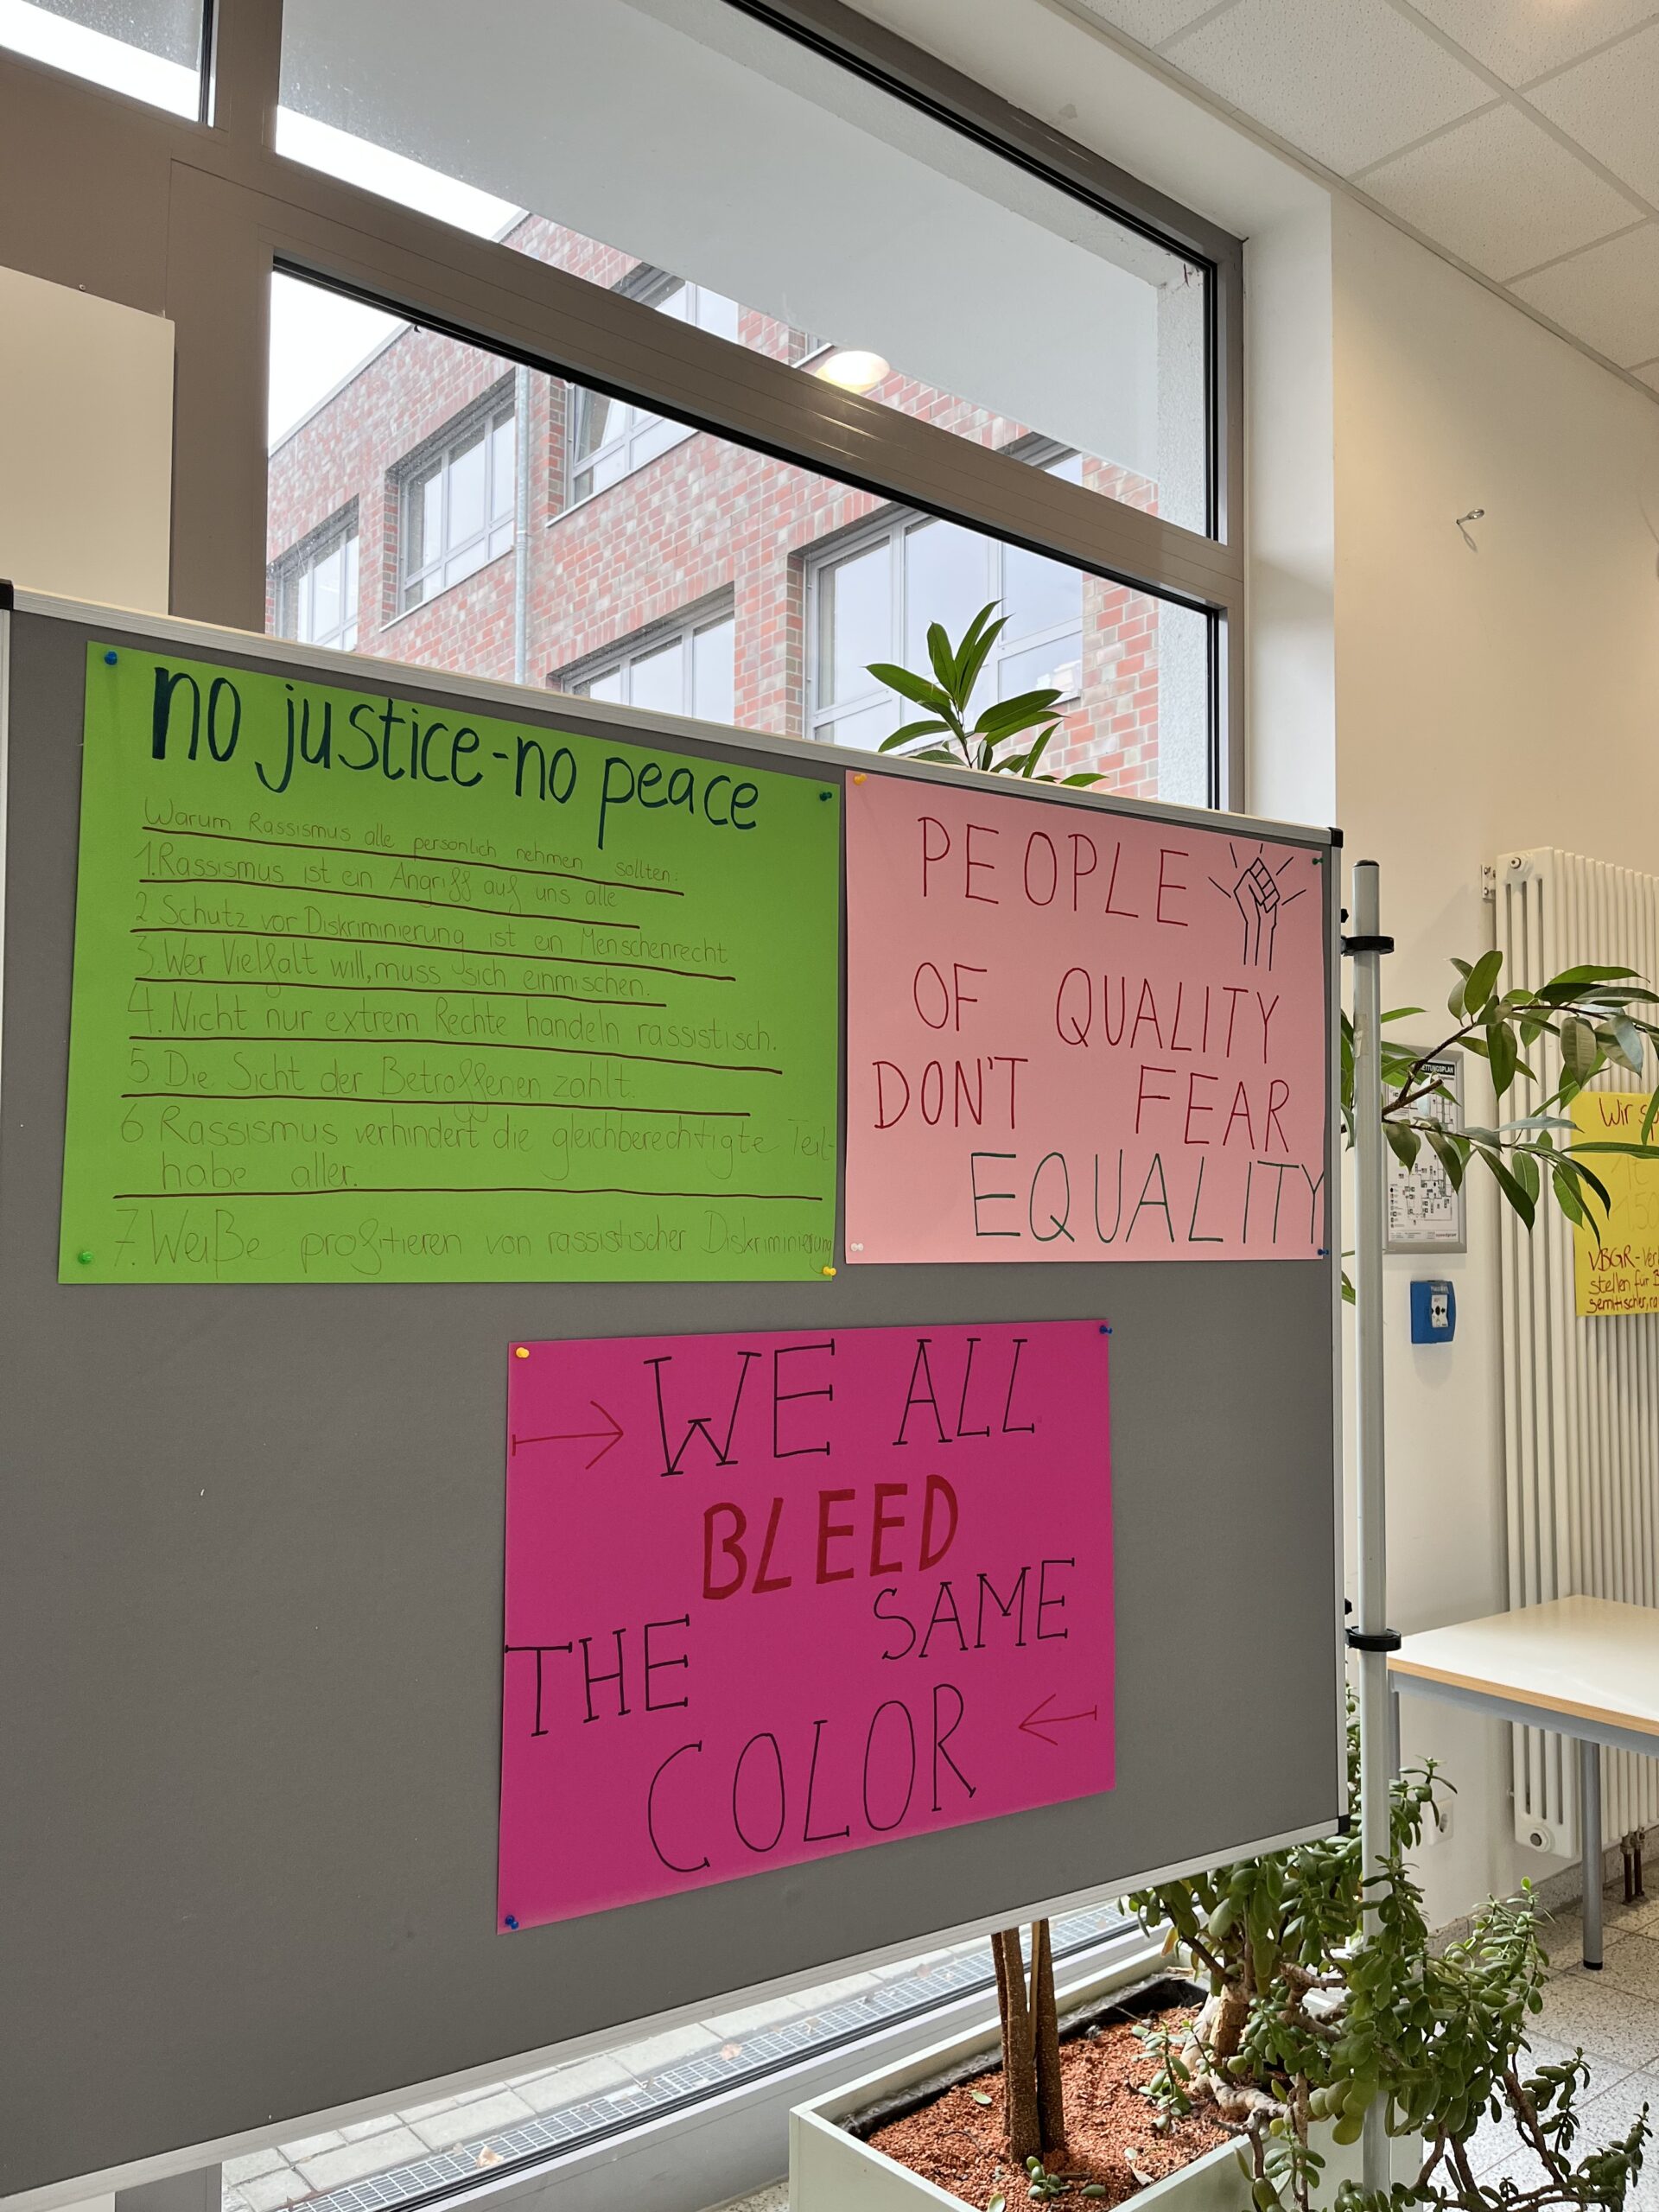 no justice-no peace
Warum Rassismus alle persönlich nehmen sollten.
1.Rassismus ist ein Angriff auf uns alle
2 Schutz vor Diskriminierung ist ein Menschenrecht
3.Wer Vielfalt will, muss sich einmischen.
4. Nicht nur extrem Rechte handeln rassistisch.
5 Die Sicht der Betroffenen zählt.
6 Rassismus verhindert die gleichberechtigte Teil-
habe aller.
7. Weiße profitieren von rassistischer Diskriminierung
PEOPLE
OF QUALITY
DON'T FEAR
EQUALITY
WE ALL
BLEED
THE SAME
COLOR
Wir
VBGR-
stellen für